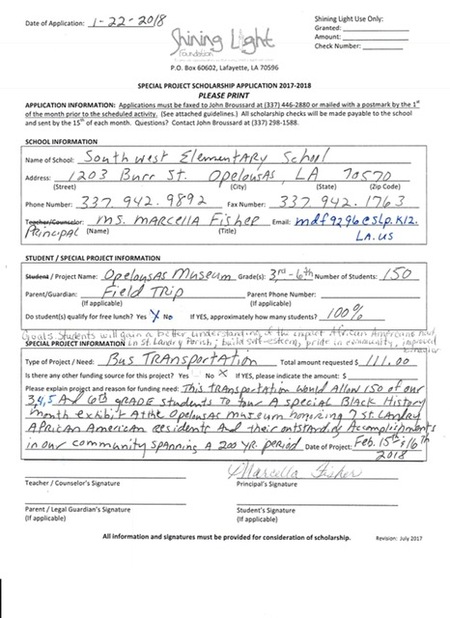 Date of Application: 1-22-2018
Shining Light Use Only:
Granted:
Amount:
Check Number:
Shining Light
Foundation
P.O. Box 60602, Lafayette, LA 70596
SPECIAL PROJECT SCHOLARSHIP APPLICATION 2017-2018
PLEASE PRINT
APPLICATION INFORMATION: Applications must be faxed to John Broussard at (337) 446-2880 or mailed with a postmark by the 1st
of the month prior to the scheduled activity. (See attached guidelines.) All scholarship checks will be made payable to the school
and sent by the 15th of each month. Questions? Contact John Broussard at (337) 298-1588.
SCHOOL INFORMATION
Name of School: Southwest Elementary School
Address: 1203 Burr St. Opelousas, LA 70570
(Street) (City) (State) (Zip Code)
Phone Number: 337.942.9892 Fax Number: 337.942.1763
Teacher/Counselor: Ms. Marcella Fisher Email: mdf9296@slp.k12.
Principal (Name) (Title) LA.us
STUDENT / SPECIAL PROJECT INFORMATION
Student / Project Name: Opelousas Museum Grade(s): 3rd-6th Number of Students: 150
Parent/Guardian: Field Trip Parent Phone Number:
(If applicable) (If applicable)
Do student(s) qualify for free lunch? Yes X No If YES, approximately how many students? 100%
Goals: Students will gain a better understanding of the impact African Americans had
SPECIAL PROJECT INFORMATION in St. Landry Parish; build self-esteem, pride in community, improved
behavior
Type of Project / Need: Bus Transportation Total amount requested $ 111.00
Is there any other funding source for this project? Yes No X If YES, please indicate the amount: $
Please explain project and reason for funding need: This transportation would allow 150 of our
3,4,5 And 6th grade students to tour A special Black History
month exhibit At the Opelousas museum honoring 7 St. Landry
African American residents And their outstanding Accomplishments
in our community spanning A 200 yr. period Date of Project: Feb. 15th & 16th
2018
Marcella Fisher
Teacher / Counselor's Signature Principal's Signature
Parent / Legal Guardian's Signature Student's Signature
(If applicable) (If applicable)
All information and signatures must be provided for consideration of scholarship. Revision: July 2017